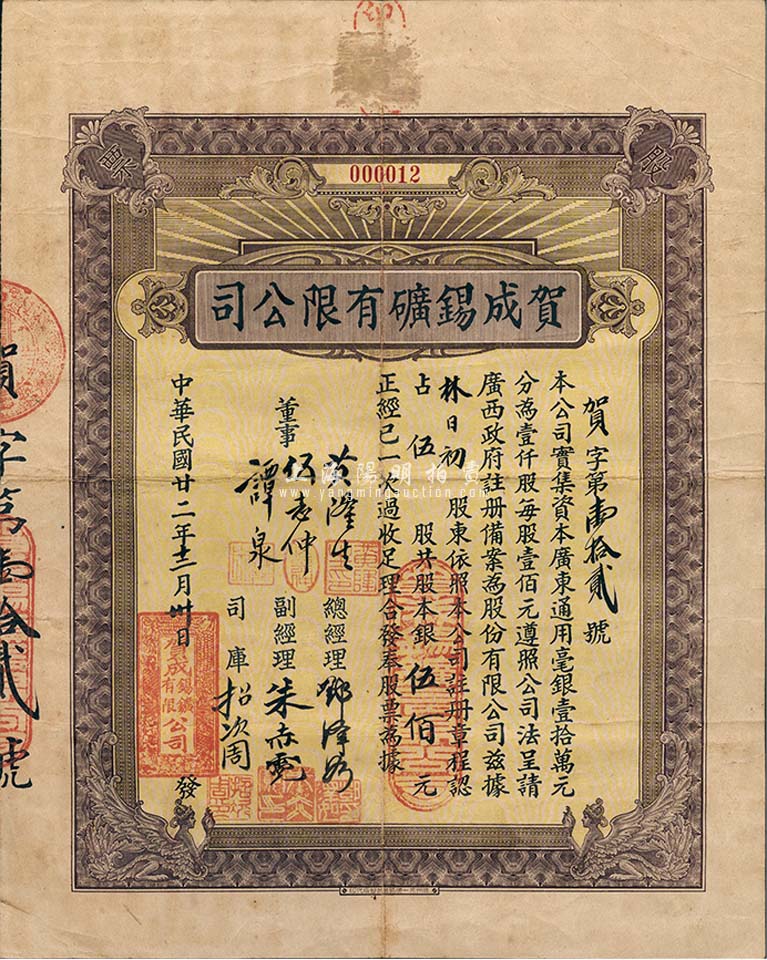 股票
000012
賀成錫礦有限公司
賀字第壹拾貳號
本公司實集資本廣東通用毫銀壹拾萬元
分為壹仟股每股壹佰元遵照公司法呈請
廣西政府註册備案為股份有限公司兹據
林日初股東依照本公司註册章程認
占伍股共股本銀伍佰元
正經已一次過收足理合發奉股票為據
董事
伍志仲
譚泉
總經理
副經理朱赤霓
司庫招次周
中華民國廿二年十二月卅日
發
賀成錫鑛有限公司
字第壹拾貳號
上海陽明拍賣
www.yangmingauction.com